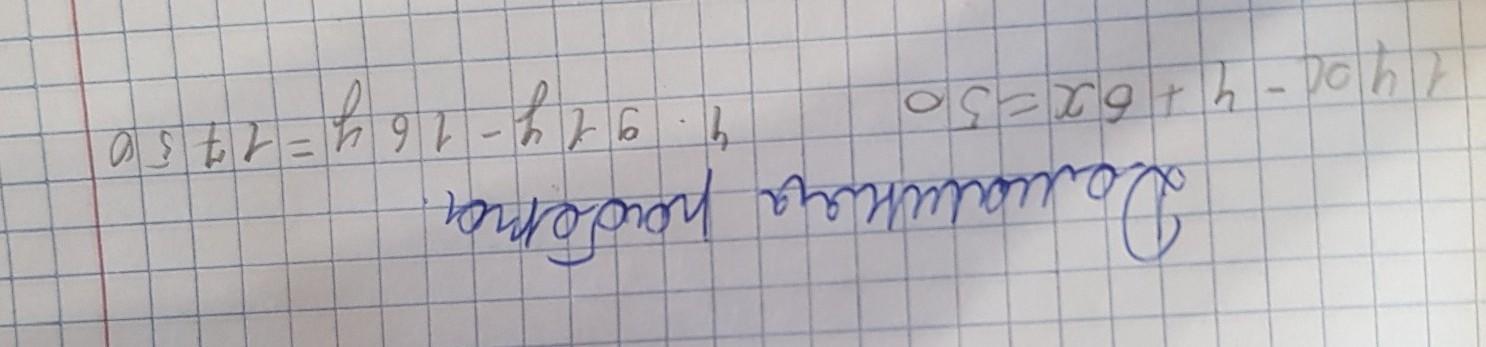 Домашняя работа.
14x - 4 + 6x = 50 4. 91y - 16y = 1750